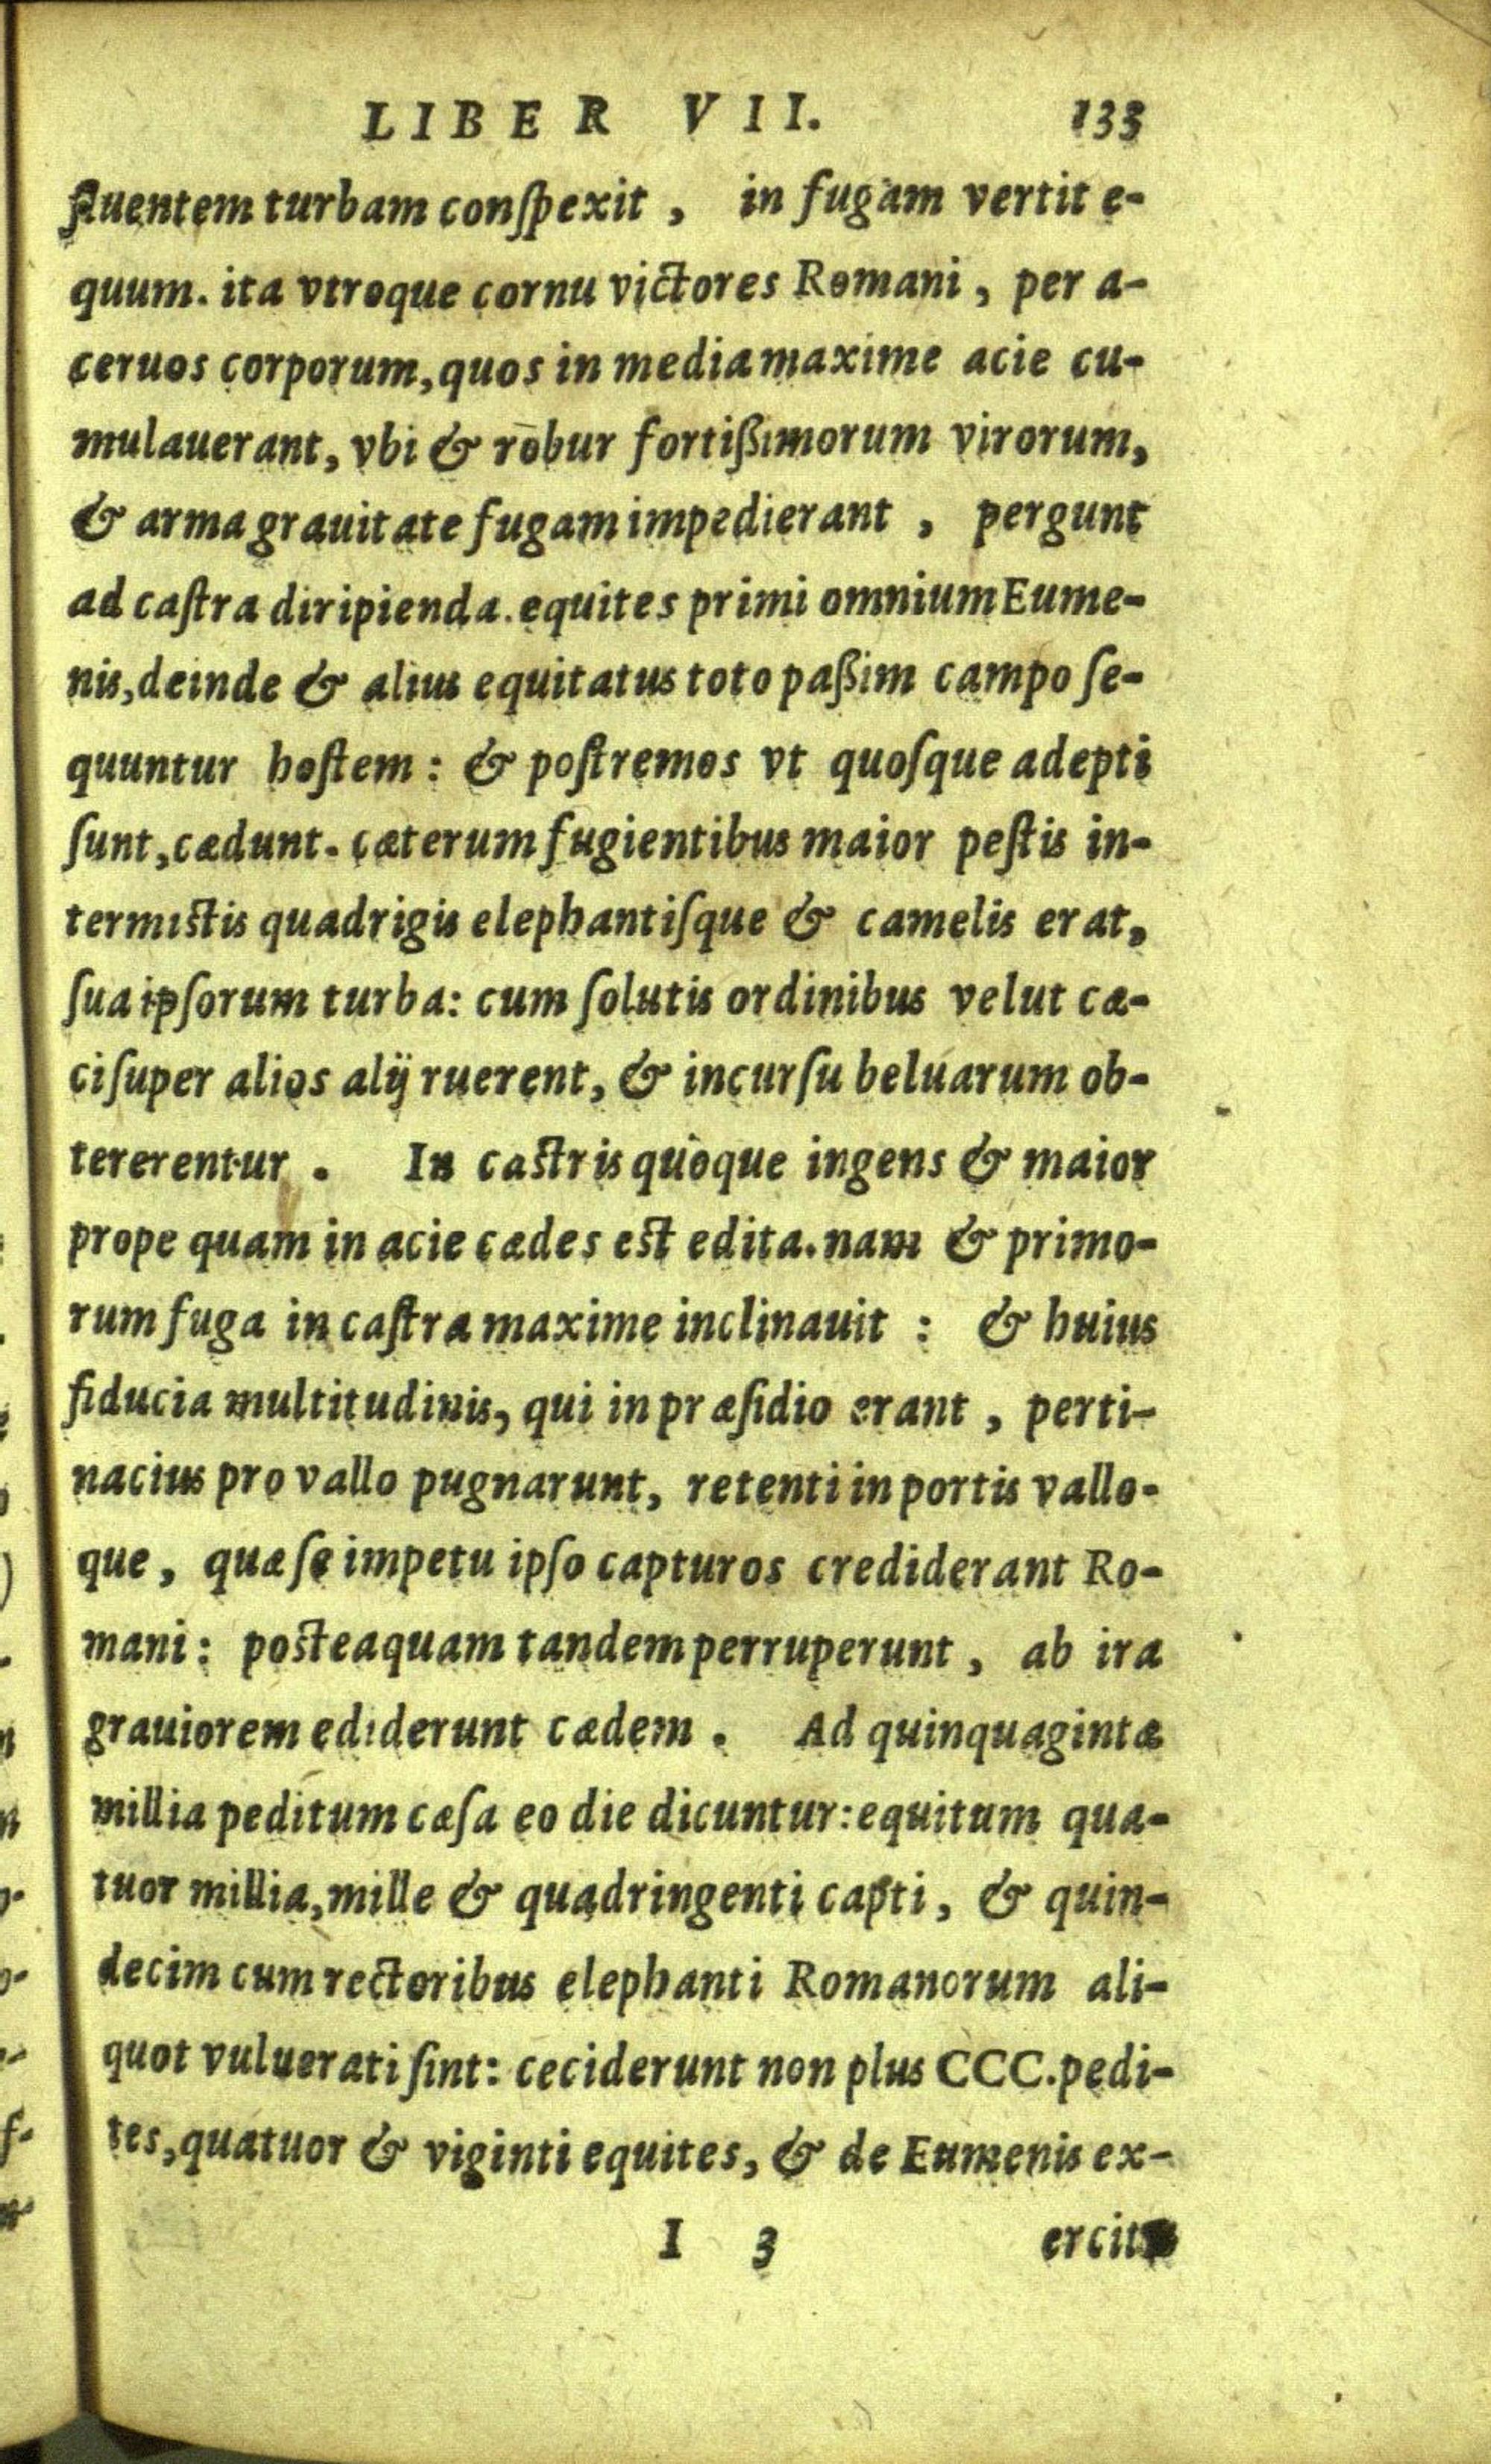 LIBER VII. 133
fluentem turbam conſpexit, in fugam vertit e-
quum. ita vtroque cornu victores Romani, per a-
ceruos corporum, quos in media maxime acie cu-
mulauerant, vbi & robur fortißimorum virorum,
& arma grauitate fugam impedierant, pergunt
ad caſtra diripienda. equites primi omnium Eume-
nis, deinde & alius equitatus toto paßim campo ſe-
quuntur hoſtem: & poſtremos vt quoſque adepti
ſunt, cædunt. cæterum fugientibus maior peſtis in-
termiſtis quadrigis elephantiſque & camelis erat,
ſua ipſorum turba: cum ſolutis ordinibus velut cæ-
ci ſuper alios alij ruerent, & incurſu beluarum ob-
tererentur. In caſtris quoque ingens & maior
prope quam in acie cædes eſt edita. nam & primo-
rum fuga in caſtra maxime inclinauit: & huius
fiducia multitudinis, qui in præſidio erant, perti-
nacius pro vallo pugnarunt, retenti in portis vallo-
que, quæ ſe impetu ipſo capturos crediderant Ro-
mani: poſteaquam tandem perruperunt, ab ira
grauiorem ediderunt cædem. Ad quinquaginta
millia peditum cæſa eo die dicuntur: equitum qua-
tuor millia, mille & quadringenti capti, & quin-
decim cum rectoribus elephanti Romanorum ali-
quot vuluerati ſint: ceciderunt non plus CCC. pedi-
tes, quatuor & viginti equites, & de Eumenis ex-
I 3 ercitu